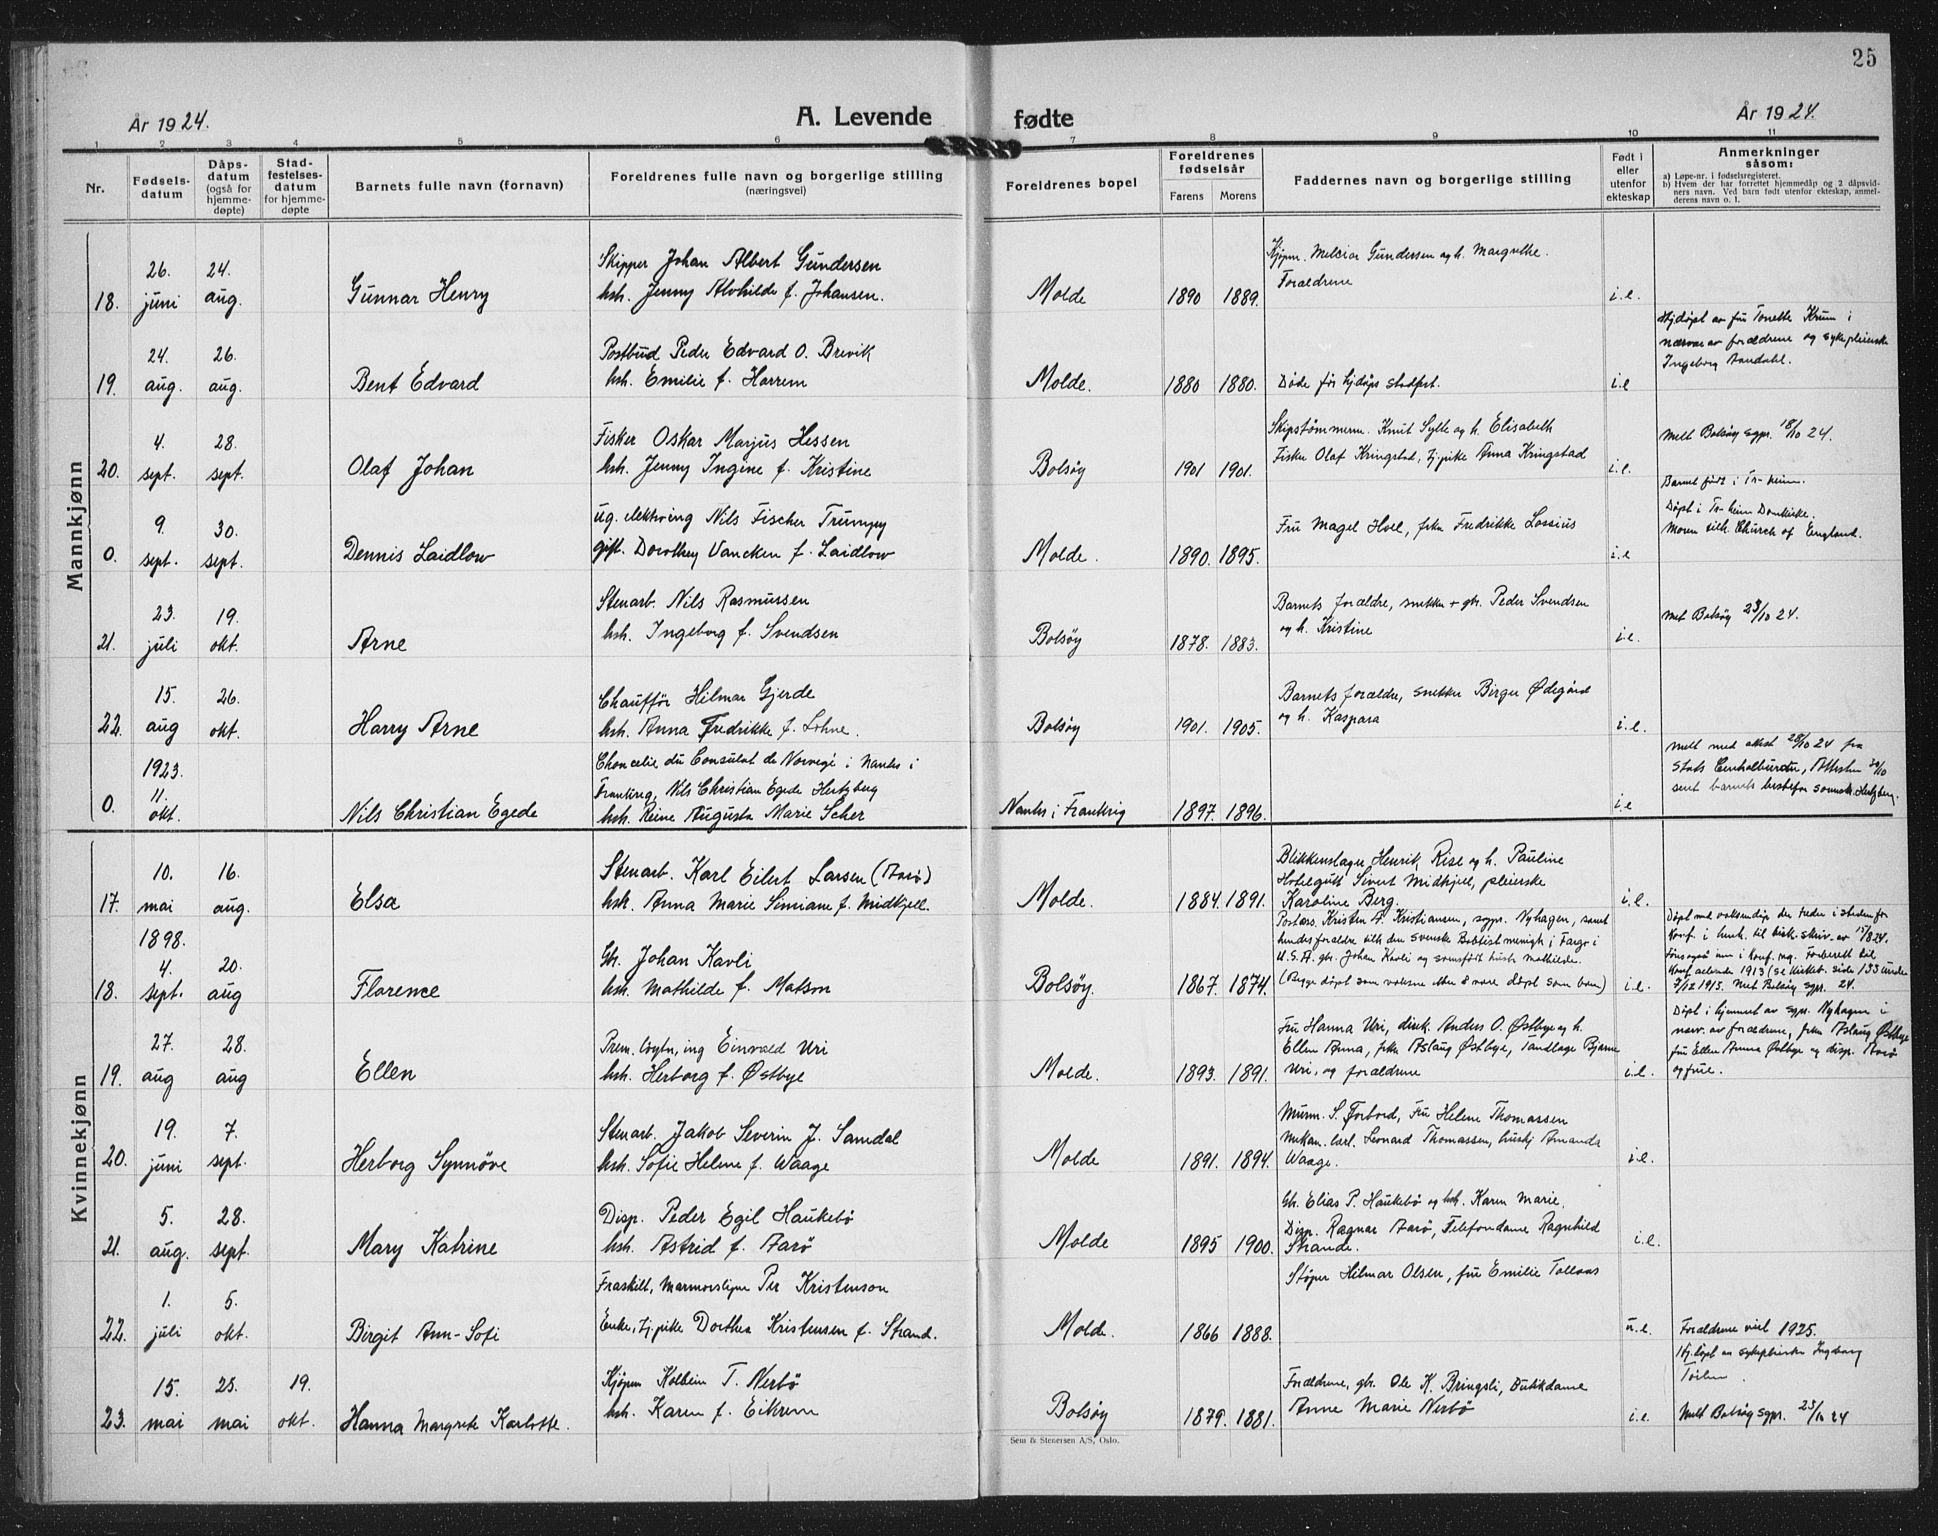 25
År 1924.
A. Levende fødte
År 1924.
1 2 3 4 5 6 7 8 9 10 11
Nr.
Fødselsdatum
Dåpsdatum (også for hjemmedøpte)
Stadfestelsesdatum for hjemmedøpte
Barnets fulle navn (fornavn)
Foreldrenes fulle navn og borgerlige stilling (næringsvei)
Foreldrenes bopel
Foreldrenes fødselsår
Farens Morens
Faddernes navn og borgerlige stilling
Født i eller utenfor ekteskap
Anmerkninger såsom:
a) Løpe-nr. i fødselsregisteret.
b) Hvem der har forrettet hjemmedåp og 2 dåpsvidners navn. Ved barn født utenfor ekteskap, anmelderens navn o. l.
Mannkjønn
18. 26. juni 24. aug. Gunnar Henry
Skipper Johan Albert Gundersen
hsh. Jenny Alvhilde f. Johansen.
Molde 1890 1889.
Kjøpm. Melcior Gundersen og h. Margrethe.
Forældrene
i.e.
19. 24. aug. 26. aug. Bent Edvard
Postbud Peder Edvard O. Brevik
hsh. Emilie f. Harrem
Molde. 1880 1880.
Døde før hjdåps stadfest.
i.e
Hjdøpt av fru Tonette Krum i
nærvær av forældrene og sykepleierske
Ingeborg Aandahl.
20. 4. sept. 28. sept. Olaf Johan
Fisker Oskar Marius Hessen
hsh. Jenny Ingine f. Kristine
Bolsøy 1901 1901.
Skipstømmerm. Knut Sylte og h. Elisabeth
Fisker Olaf Kringstad, tj.pike Anna Kringstad
i.e.
Melt Bolsøy sgpr. 18/10 24.
0. 9. sept. 30. sept. Dennis Laidlow
ug. elektroing Nils Fischer Trumpy
gift. Dorothey Vancken f. Laidlow
Molde. 1890. 1895.
Fru Magel Hoel, frkn Fredrikke Lossius
i.e
Barnet født i Tr-heim.
Døpt i Tr-heim Domkirke.
Moren tilh. Church of England.
21. 23. juli 19. okt. Arne
Stenarb. Nils Rasmussen
hsh. Ingeborg f. Svendsen
Bolsøy 1878. 1883.
Barnets forældre, snekker + gbr. Peder Svendsen
og h. Kristine
i.e.
Met Bolsøy 23/10 24.
22. 15. aug 26. okt. Harry Arne
Chauffør Hilmar Gjerde
hsh. Anna Fredrikke f. Lohne.
Bolsøy 1901. 1905.
Barnets forældre, snekker Birger Ødegård
og h. Kaspara
i.e.
0. 1923. 11. okt. Nils Christian Egede
Chancelie du Consulat de Norvege i Nantes i
Frankrig, Nils Christian Egede Hertzberg
hsh. Reine Augusta Marie Scher
Nantes i Frankrig 1897. 1896.
i.e
Melt med attest 28/10 24 fra
Stats Centralburau, Attesten
sent barnets bestefar Hertzberg.
Kvinnekjønn
17. 10. mai 16. aug. Elsa
Stenarb. Karl Eilert Larsen (Aarø)
hsh. Anna Marie Simiane f. Midkjell.
Molde. 1884. 1891.
Blikkenslager Henrik Rise og h. Pauline
Hotelgutt Sivert Midkjell, pleierske
Karoline Berg.
i.e.
18. 1898. 4. sept. 20. aug Florence
Gbr. Johan Kavli
hsh. Mathilde f. Matson
Bolsøy. 1867. 1874.
Postass. Kristen A. Kristiansen, sogpr. Nyhagen, samt
hendes forældre tilh den svenske Babtistmenigh i Fargo i
U.S.A. gbr. Johan Kavli og svenskfødt hustr Mathilde.
(Begge døpt som voksne etter å være døpt som barn)
i.e.
Døpt med voksendåp
Konf.
Konf 1913 (se kirkeb. side 133 under
7/12 1913. Met Bolsøy sgpr. 24.
19. 27. aug 28. aug Ellen
Prem. løytn, ing Einvald Uri
hsh. Herborg f. Østbye
Molde. 1893. 1891.
Fru Hanna Uri, disk. Anders O. Østbye og h.
Ellen Anna, frkn Aslaug Østbye, Tandlæge Bjarne
Uri, og forældrene
i.e.
Døpt i hjemmet av sgpr. Nyhagen i
nærv. av forældrene, frkn Aslaug Østbye
fru Ellen Anna Østbye og disp. Aarø
og frue.
20. 19. juni 7. sept. Herborg Synnøve
Stenarb. Jakob Severin J. Samdal
hsh. Sofie Helene f. Waage
Molde 1891. 1894.
Murm. S. Forbord, Fru Helene Thomassen
Mekan. lærl. Leonard Thomassen, hushj Amanda
Waage.
i.e.
21. 5. aug. 28. sept. Mary Katrine
Disp. Peder Egil Haukebø
hsh. Astrid f. Aarø
Molde 1895 1900.
Gbr. Elias P. Haukebø og hsh. Karen Marie.
Disp. Ragnar Aarø, Telefondame Ragnhild
Strande.
i.e.
22. 1. juli 5. okt. Birgit Ann-Sofi
Fraskilt, Marmorsliper Per Kristenson
Enke, tj.pike Dorthea Kristensen f. Strand.
Molde. 1866 1888.
Støper Hilmar Olsen, fru Emilie Tollaas
u.e.
Forældrene viet 1925.
23. 15. mai 25. mai 19. okt. Hanna Margrete Karlotte.
Kjøpm Kolbein T. Nerbø
hsh. Karen f. Eikrem
Bolsøy 1879. 1881.
Forældrene, gbr. Ole K. Bringsli, Butikdame
Anne Marie Nerbø
i.e.
Hj.døpt av sykepleierske Ingeborg
Melt Bolsøy sgpr. 23/10 24
Sem & Stenersen A/S, Oslo.